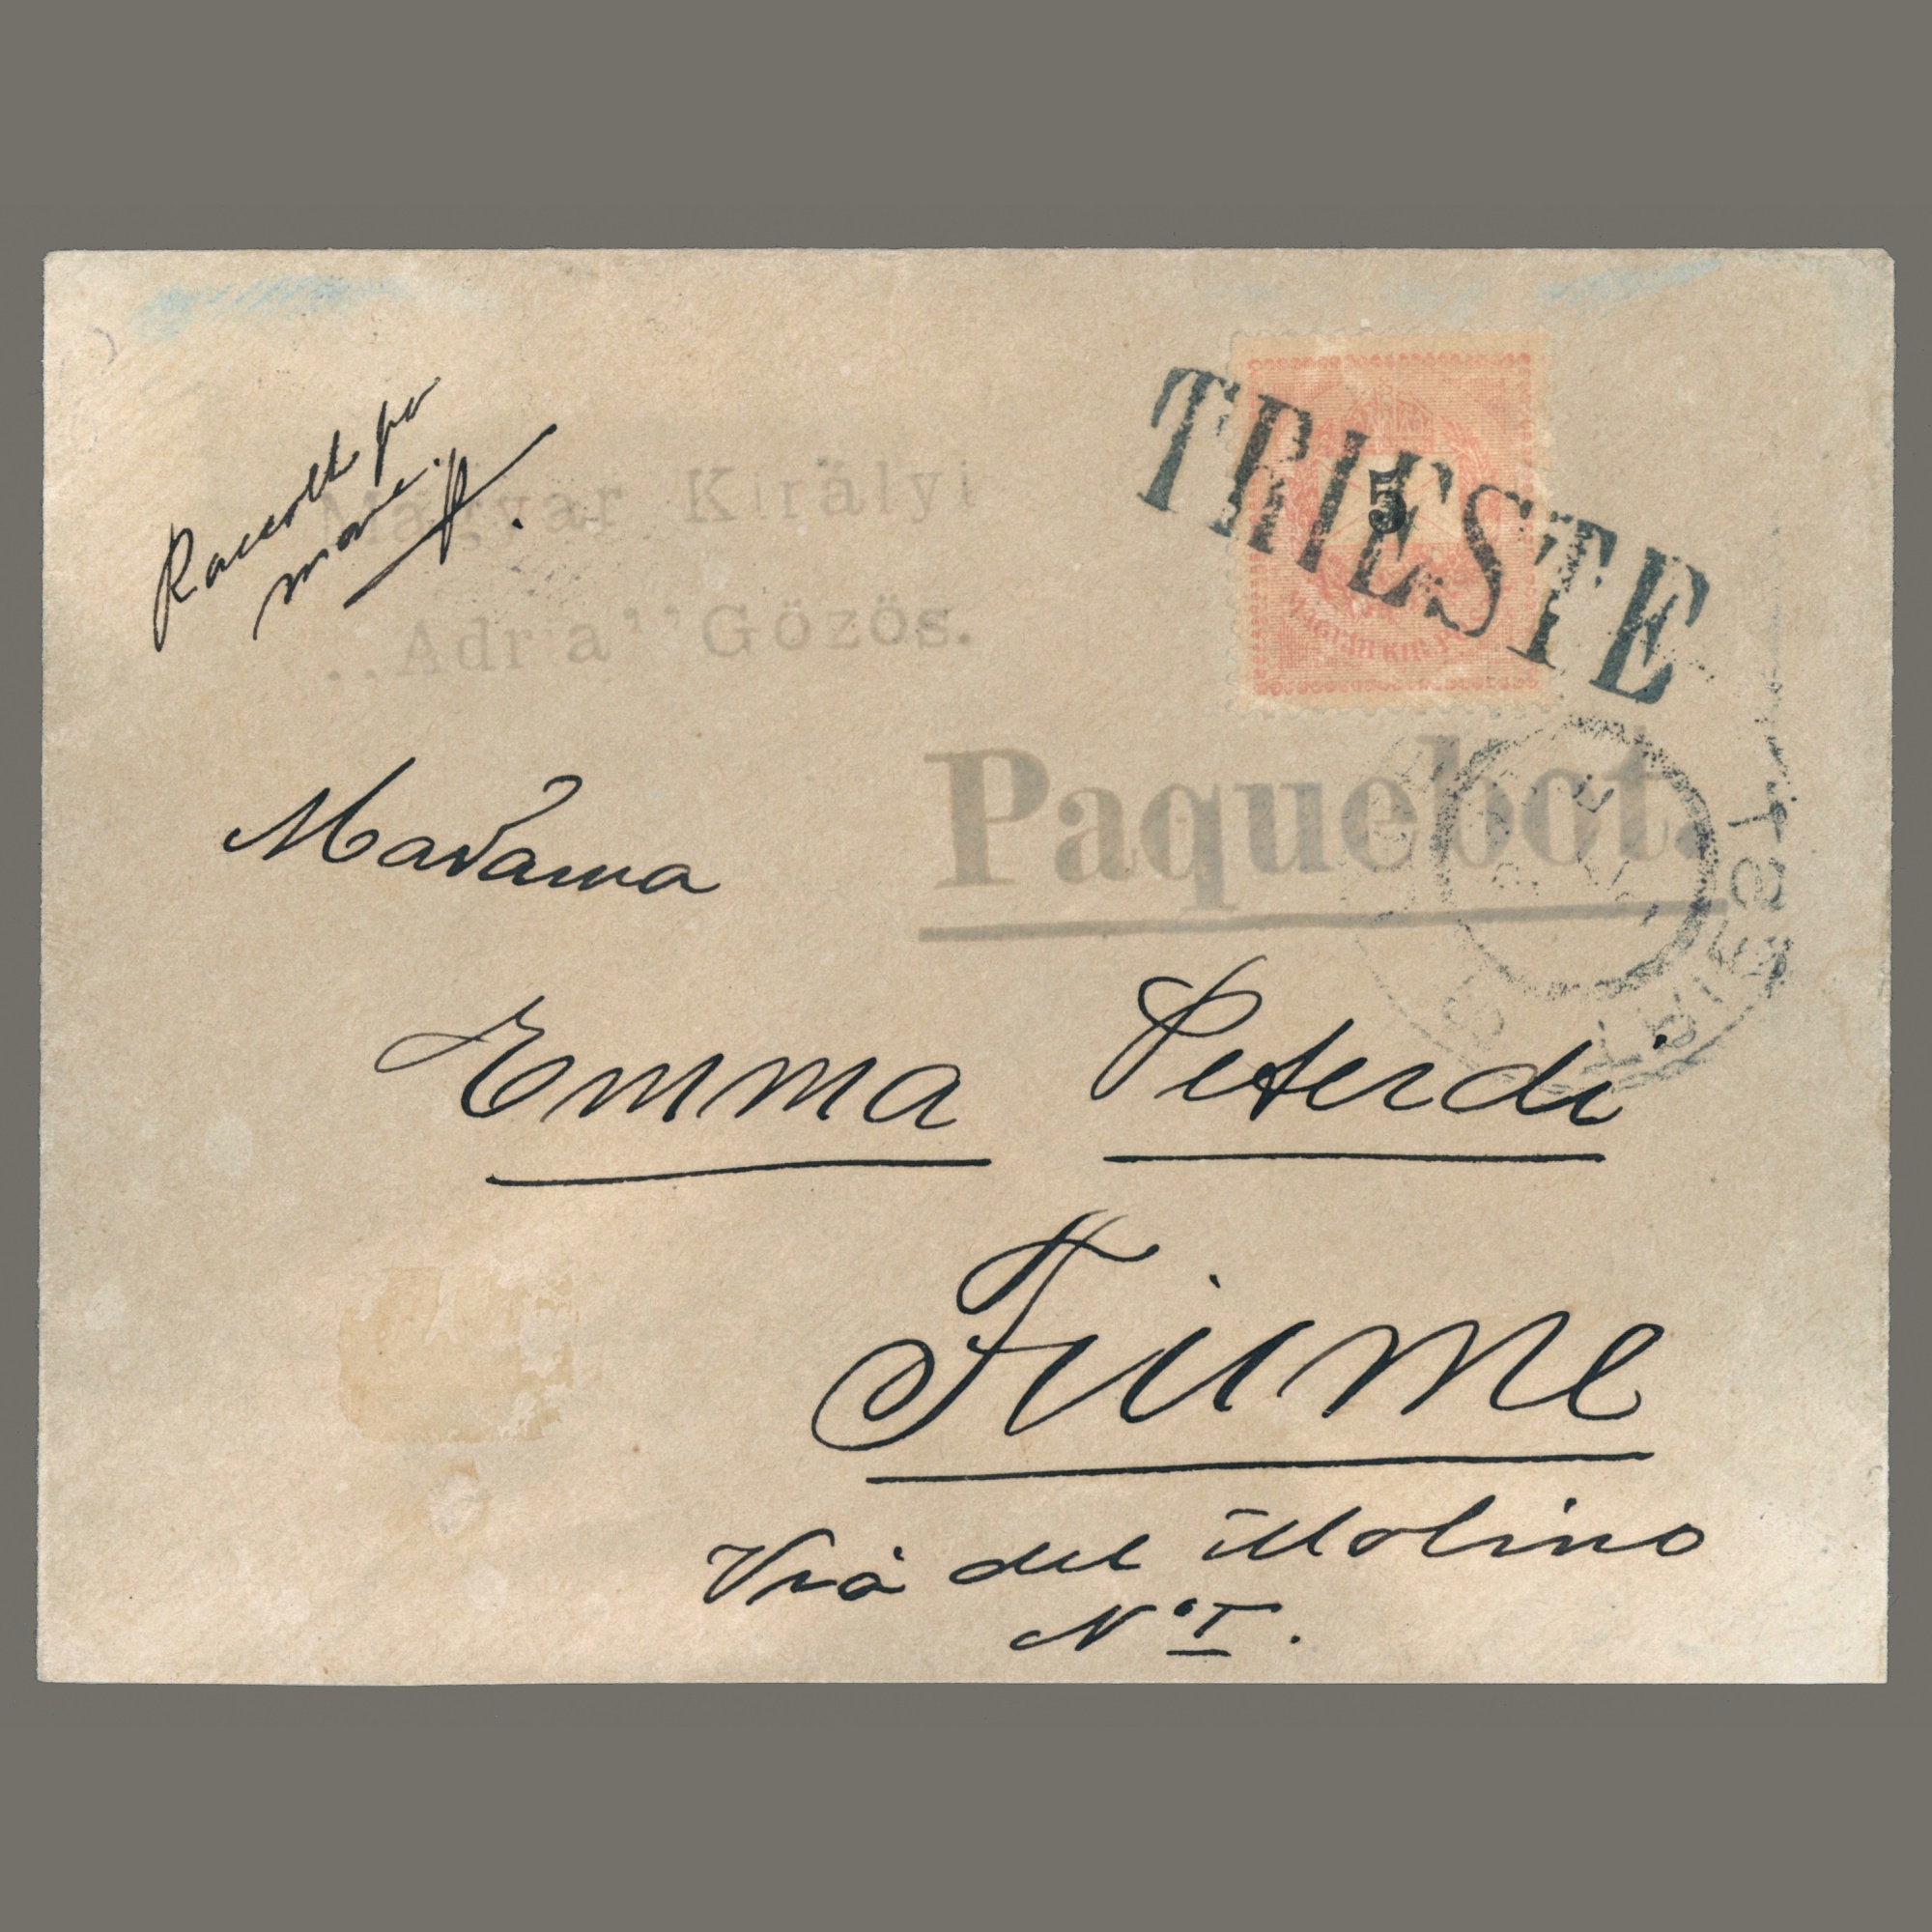 Raccolta per
mare.
Magyar Királyi
„Adria” Gözös.
TRIESTE
5
MAGYAR KIR. P
Paquebot.
TRIEST
Madama
Emma Peterdi
Fiume
Via del Molino
N° I.